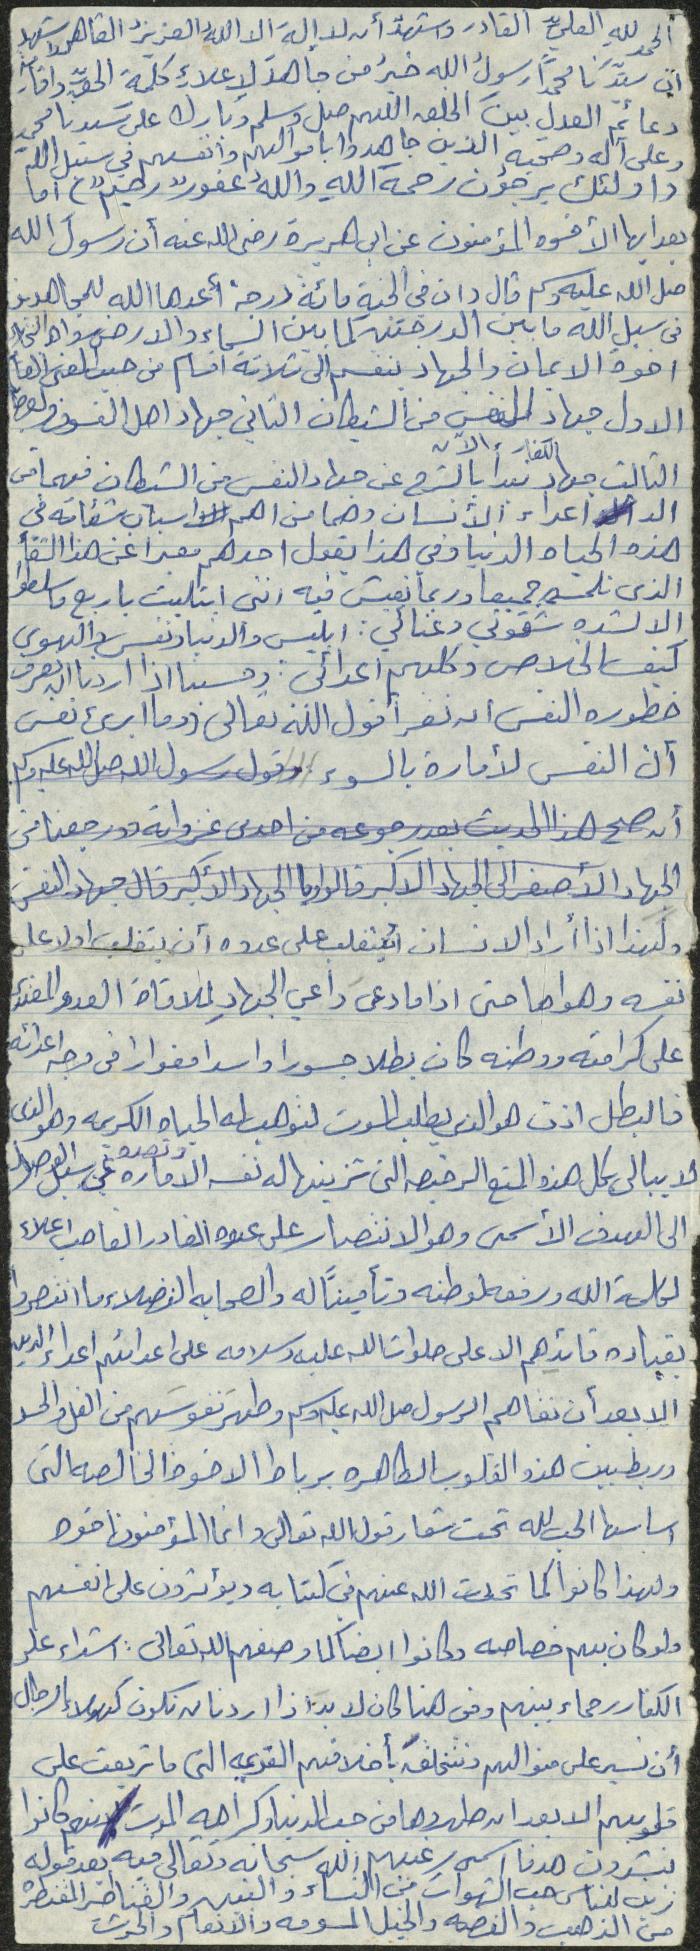 الحمد لله العلي القادر واشهد أن لا إله الا الله العزيز القاهر واشهد
أن سيدنا محمداً رسول الله خيرُ من جاهد لإعلاء كلمة الحق واقام
دعائم العدل بين الخلق اللهم صل وسلم وبارك على سيدنا محمد
وعلى آله وصحبه الذين جاهدوا باموالهم وانفسهم في سبيل الله
(اولئك يرجون رحمة الله واللهُ غفور رحيم) اما
بعد ايها الأخوه المؤمنون عن ابي هريرة رضي الله عنه أن رسول الله
صل الله عليه وسلم قال (ان في الجنة مائة درجة أعدها الله للمجاهدين
في سبيل الله ما بين الدرجتين كما بين السماء والارض) رواه البخاري
اخوة الايمان والجهاد ينقسم الى ثلاثة اقسام من حيث المعنى العام
الاول جهاد النفس من الشيطان الثاني جهاد اهل الفسوق
الثالث جهاد الكفار نبدأ الآن بالشرح عن جهاد النفس من الشيطان فهما من
الد اعداء الأنسان وهما من اهم اسباب شقائه في
هذه الحياه الدنيا وفي هذا يقول احدهم معبرا عن هذا الشقاء
الذي نلمسه جميعا وربما نعيش فيه انني ابتليت باربع ما سلطوا
الا لشدة شقوتي وعنائي: ابليس والدنيا ونفسي والهوى
كيف الخلاص وكلهم اعدائي: وحسبنا اذا اردنا ان نعرف
خطوره النفس ان نقرأ قول الله تعالى (وما ابرئ نفسي
أن النفس لأمارة بالسوء) وقول رسول الله صل الله عليه وسلم
أن صح هذا الحديث بعد رجوعه من احدى غزواته (رجعنا من
الجهاد الأصغر الى الجهاد الاكبر قالوا وما الجهاد الأكبر قال جهاد النفس
ولهذا اذا أراد الانسان أن يتغلب على عدوه أن يتغلب اولا على
نفسه وهواها حتى اذا ما دعى داعي الجهاد لملاقاة العدو المعتدي
على كرامته ووطنه كان بطلا جسورا واسدا مغوارا في وجه اعدائه
فالبطل اذن هو الذي يطلب الموت لتوهب له الحياه الكريمه وهو الذي
لا يبالي بكل هذه المتع الرخيصه التي تزينها له نفسه الاماره وتصده في سبيل الوصول
الى الهدف الأسمى وهو الانتصار على عدوه الغادر الغاصب اعلاء
لكلمة الله ورفعة لوطنه وتأميناً له والصحابه الفضلاء ما انتصروا
بقيادة قائدهم الاعلى صلوات الله عليه وسلامه على اعدائهم اعداء الدين
الا بعد أن نقاهم الرسول صل الله عليه وسلم وطهر نفوسهم من الغل والحسد
وربط بين هذه القلوب الطاهره برباط الاخوة الخالصه التي
اساسها الحب لله تحت شعار قول الله تعالى (انما المؤمنون اخوه
ولهذا كانوا كما تحدث الله عنهم في كتابه (ويؤثرون على انفسهم
ولو كان بهم خصاصه وكانوا ايضا كما وصفهم الله تعالى: اشداء على
الكفار رحماء بينهم ومن هنا كان لا بد اذا اردنا ان نكون كهولاء الرجال
أن نسير على منوالهم ونتخلق بأخلاقهم القويمه التي ما تربعت على
قلوبهم الا بعد ان طهروها من حب الدنيا وكراهية الموت لانهم كانوا
ينشدون هدفا اسمى رغبهم الله سبحانه وتعالى فيه بعد قوله
زين للناس حب الشهوات من النساء والبنين والقناطير المقنطره
من الذهب والفضه والخيل المسومه والانعام والحرث